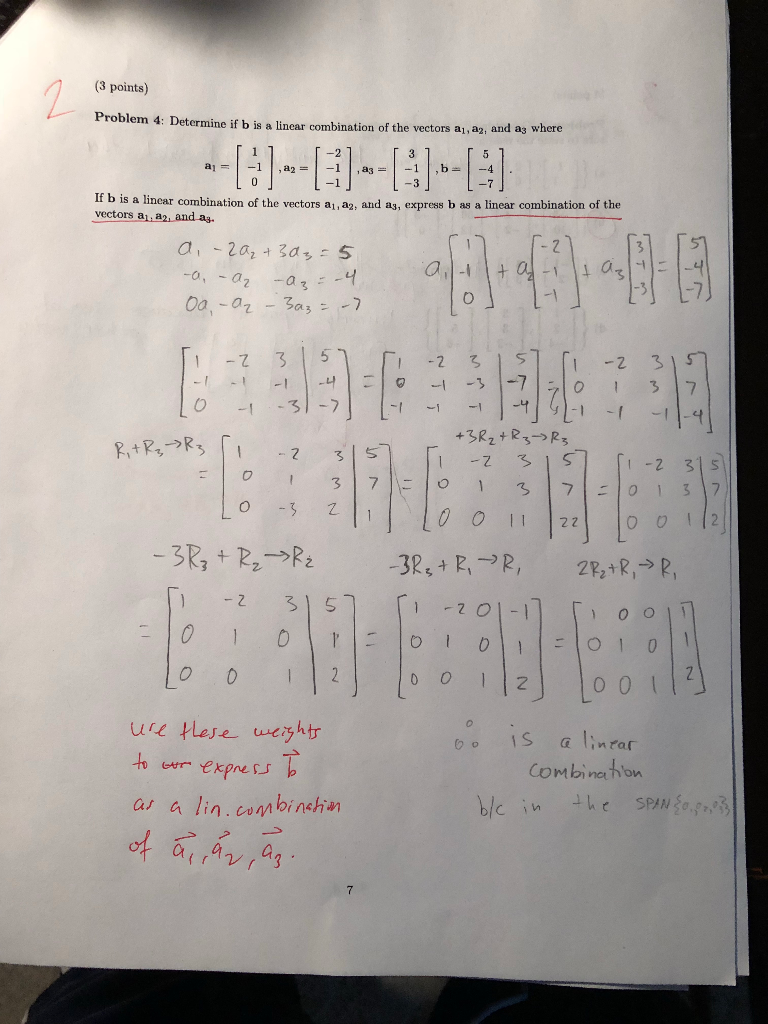 2
(3 points)
Problem 4: Determine if b is a linear combination of the vectors a₁, a₂, and a₃ where
a₁ = [1 -1 0], a₂ = [-2 -1 -1], a₃ = [3 -1 -3], b = [5 -4 -7].
If b is a linear combination of the vectors a₁, a₂, and a₃, express b as a linear combination of the
vectors a₁, a₂, and a₃.
a₁ - 2a₂ + 3a₃ = 5
-a₁ - a₂ - a₃ = -4
0a₁ - a₂ - 3a₃ = -7
a₁[1 -1 0] + a₂[-2 -1 -1] + a₃[3 -1 -3] = [5 -4 -7]
[1 -2 3 | 5] = [1 -2 3 | 5] = [1 -2 3 | 5]
[-1 -1 -1 | -4] [0 -1 -3 | -7] [0 1 3 | 7]
[0 -1 -3 | -7] [-1 -1 -1 | -4] [-1 -1 -1 | -4]
R₁+R₃→R₃ +3R₂+R₃→R₃
= [1 -2 3 | 5] = [1 -2 3 | 5] = [1 -2 3 | 5]
[0 1 3 | 7] [0 1 3 | 7] [0 1 3 | 7]
[0 -3 2 | 1] [0 0 11 | 22] [0 0 1 | 2]
-3R₃ + R₂→R₂ -3R₃ + R₁→R₁ 2R₂+R₁→R₁
= [1 -2 3 | 5] = [1 -2 0 | -1] = [1 0 0 | 1]
[0 1 0 | 1] [0 1 0 | 1] [0 1 0 | 1]
[0 0 1 | 2] [0 0 1 | 2] [0 0 1 | 2]
use these weights
to express b⃗
as a lin. combination
of a⃗₁, a⃗₂, a⃗₃.
∴ is a linear
combination
b/c in the SPAN{a₁,a₂,a₃}
7